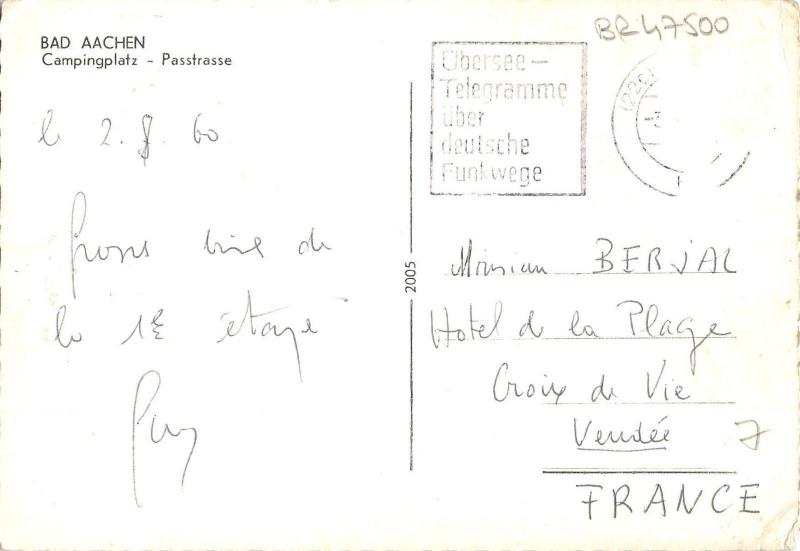 BR47500
BAD AACHEN
Campingplatz - Passtrasse
Übersee-
Telegramme
über
deutsche
Funkwege
(22c)
le 2.8.60
Grosses bises de
la 1re étape
2005
Monsieur BERJAL
Hotel de la Plage
Croix de Vie
Vendée
7
FRANCE